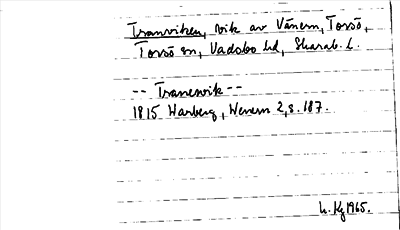 Tranviken, vik av Vänern, Torsö,
Torsö sn, Vadsbo hd, Skarab. l.
-- Tranesvik --
1815 Warberg, Wenern 2, s. 187.
1965.